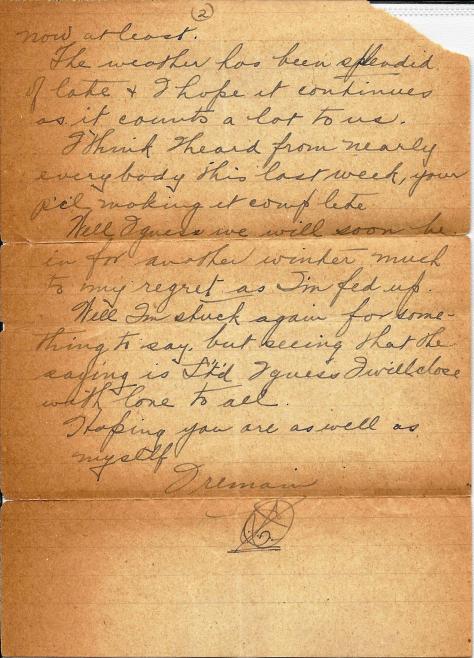 (2)
now at least.
The weather has been splendid
of late & I hope it continues
as it counts a lot to us.
I think I heard from nearly
everybody this last week, your
p'c'l making it complete
Well I guess we will soon be
in for another winter much
to my regret as I'm fed up.
Well I'm stuck again for some-
thing to say, but seeing that the
saying is I guess I will close
with love to all.
Hoping you are as well as
myself
I remain